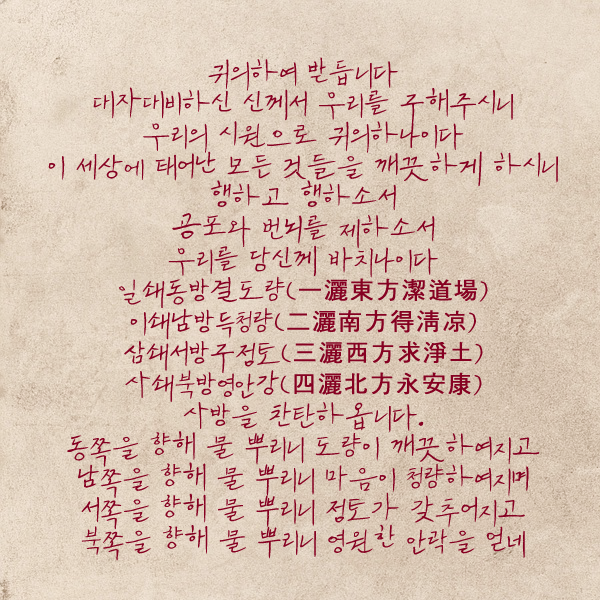 귀의하여 받듭니다
대자대비하신 신께서 우리를 구해주시니
우리의 시원으로 귀의하나이다
이 세상에 태어난 모든 것들을 깨끗하게 하시니
행하고 행하소서
공포와 번뇌를 제하소서
우리를 당신께 바치나이다
일쇄동방결도량(一灑東方潔道場)
이쇄남방득청량(二灑南方得淸凉)
삼쇄서방구정토(三灑西方求淨土)
사쇄북방영안강(四灑北方永安康)
사방을 찬탄하옵니다.
동쪽을 향해 물 뿌리니 도량이 깨끗하여지고
남쪽을 향해 물 뿌리니 마음이 청량하여지며
서쪽을 향해 물 뿌리니 정토가 갖추어지고
북쪽을 향해 물 뿌리니 영원한 안락을 얻네